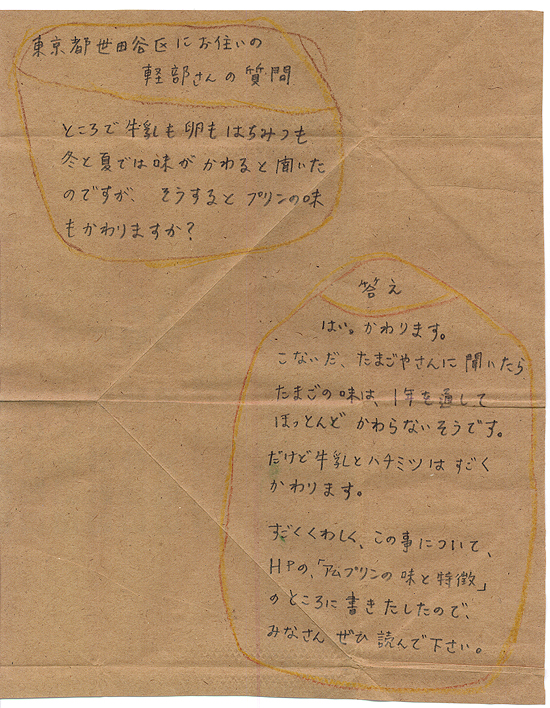 東京都世田谷区にお住いの
軽部さんの質問
ところで牛乳も卵もはちみつも
冬と夏では味がかわると聞いた
のですが、そうするとプリンの味
もかわりますか?
答え
はい。かわります。
こないだ、たまごやさんに聞いたら
たまごの味は、1年を通して
ほっとんどかわらないそうです。
だけど牛乳とハチミツはすごく
かわります。
すごくくわしく、この事について、
HPの、「アムプリンの味と特徴」
のところに書きたしたので、
みなさんぜひ読んで下さい。